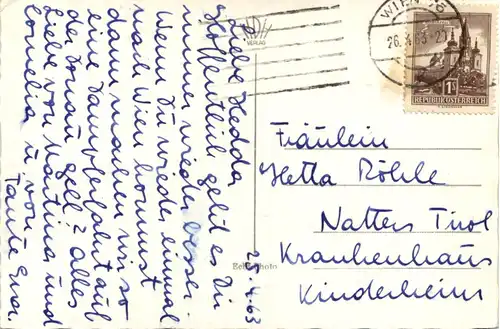 Liebe Hedda
Hoffentlich geht es Dir
immer wieder besser.
Wenn Du wieder einmal
nach Wien kommst
dann machen wir so
eine Dampferfahrt auf
der Donau gell? Alles
Liebe von Martina und
Cornelia u von
Tante Eva.
25.4.63
VERLAG
WIEN
26.4.63-21
1S
REPUBLIK ÖSTERREICH
Fräulein
Hetta Röhle
Natters Tirol
Krankenhaus
Kinderheim